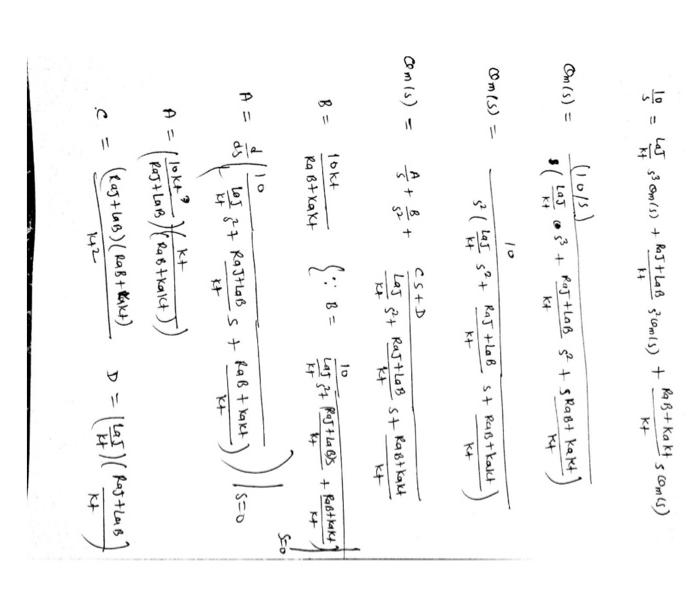 10/s = LaJ/kt s³ Θm(s) + RaJ+LaB/kt s² Θm(s) + RaB+KaKt/kt s Θm(s)
Θm(s) = (10/s) / s(LaJ/kt s³ + RaJ+LaB/kt s² + s RaB+KaKt/kt)
Θm(s) = 10 / s²(LaJ/kt s² + RaJ+LaB/kt s + RaB+KaKt/kt)
Θm(s) = A/s + B/s² + Cs+D / LaJ/kt s² + RaJ+LaB/kt s + RaB+KaKt/kt
B = 10kt / RaB+KaKt {∵ B = 10 / LaJ/kt s² + (RaJ+LaB)s/kt + RaB+KaKt/kt | s=0
A = d/ds (10 / LaJ/kt s² + RaJ+LaB/kt s + RaB+KaKt/kt) | s=0
A = (10kt / RaJ+LaB)(kt / RaB+KaKt)
C = (RaJ+LaB)(RaB+KaKt) / kt² D = (LaJ/kt)(RaJ+LaB/kt)